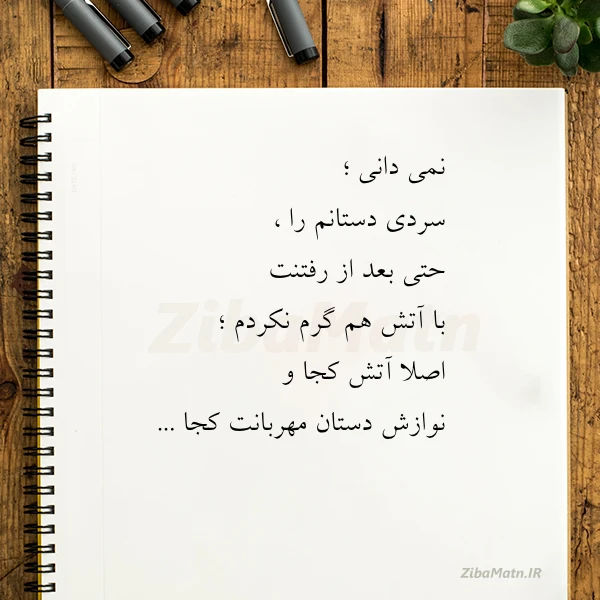 نمی دانی ؛
سردی دستانم را ،
حتی بعد از رفتنت
با آتش هم گرم نکردم ؛
اصلا آتش کجا و
نوازش دستان مهربانت کجا ...
ZibaMatn
ZibaMatn.IR